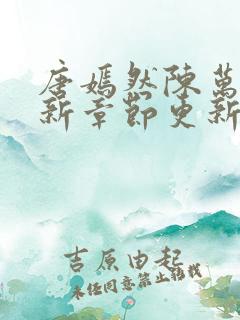 唐嫣然陳萬
新章節更新
吉原由起
未经同意禁止转载